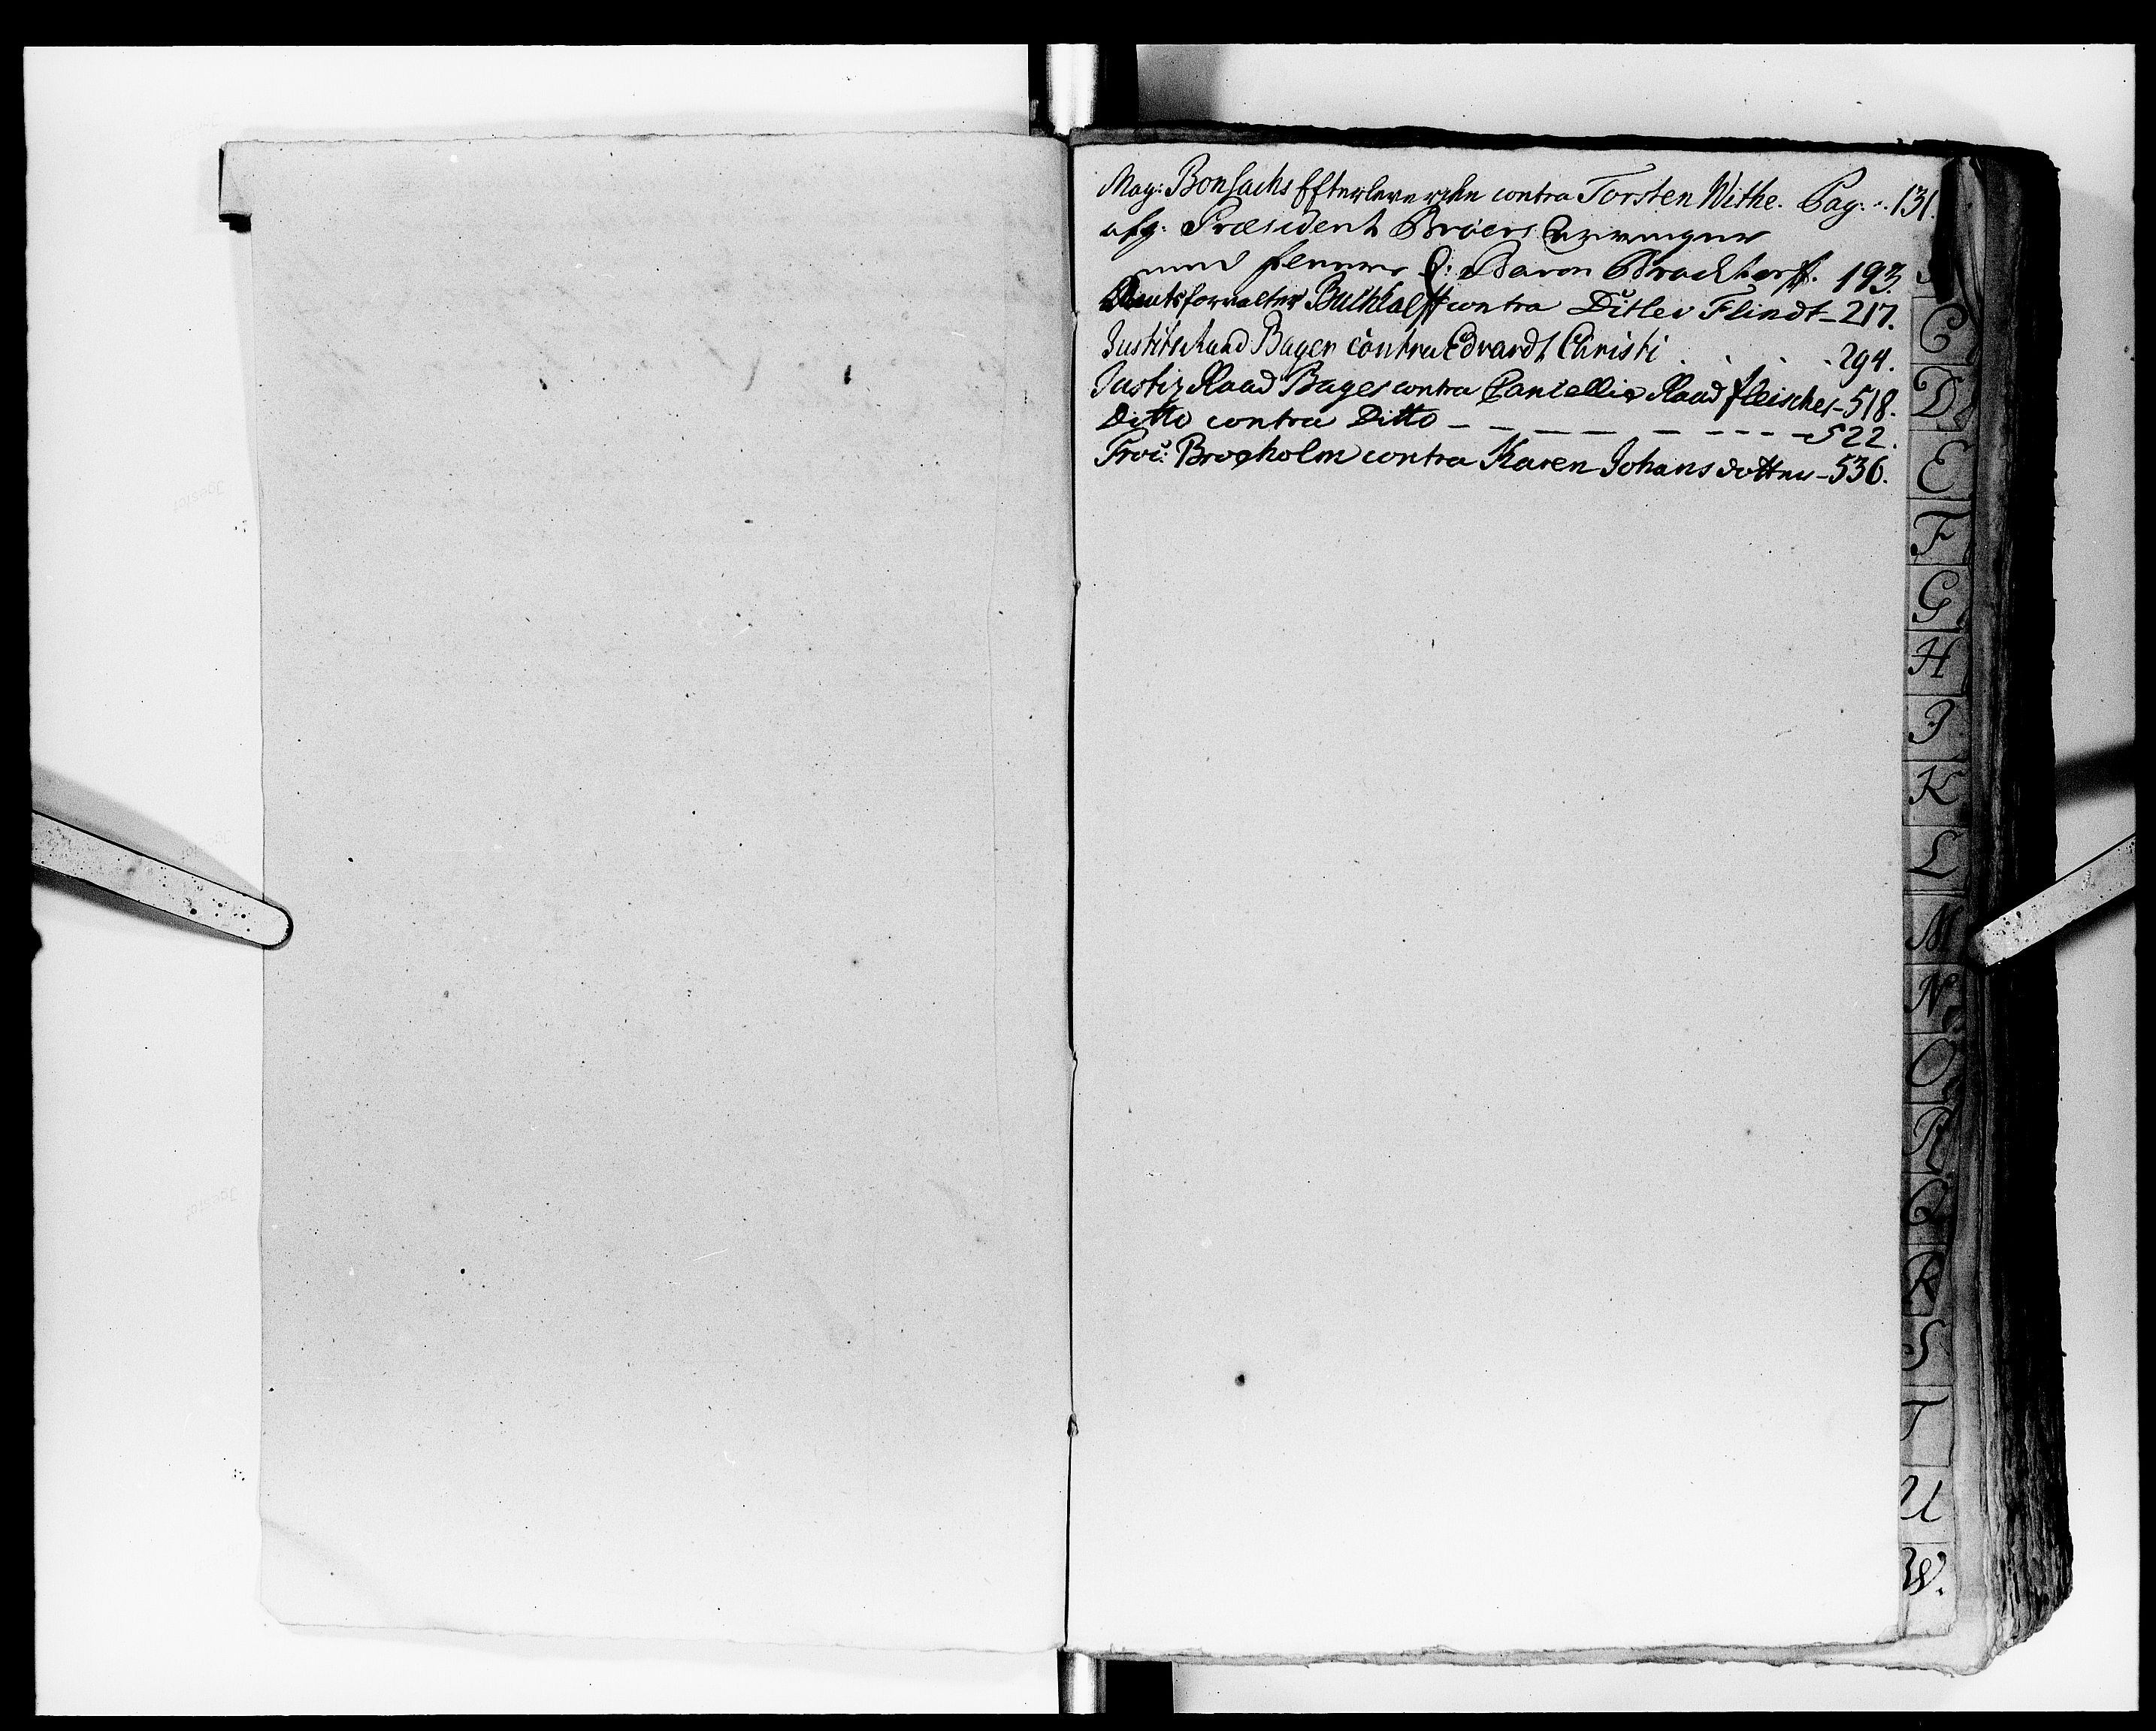 Mag: Bonsachs Efterleverske contra Torsten Withe. Pag: 131.
afg: Præsident Bröers Arvinger
Q: Baron Brockdorff. 193.
Amtsforvalter contra Ditlev Flindt - 217.
Justits Raad Bager contra Edvardt Christi . . . . 294.
Justiz Raad Bager contra Cancellie Raad Fleischer - 518.
Ditto contra Ditto - - - - - - - - - 522.
Proc: Broxholm contra Karen Johansdotter - 536.
C
D
E
F
G
H
I
K
L
M
N
O
P
Q
R
S
T
U
W.